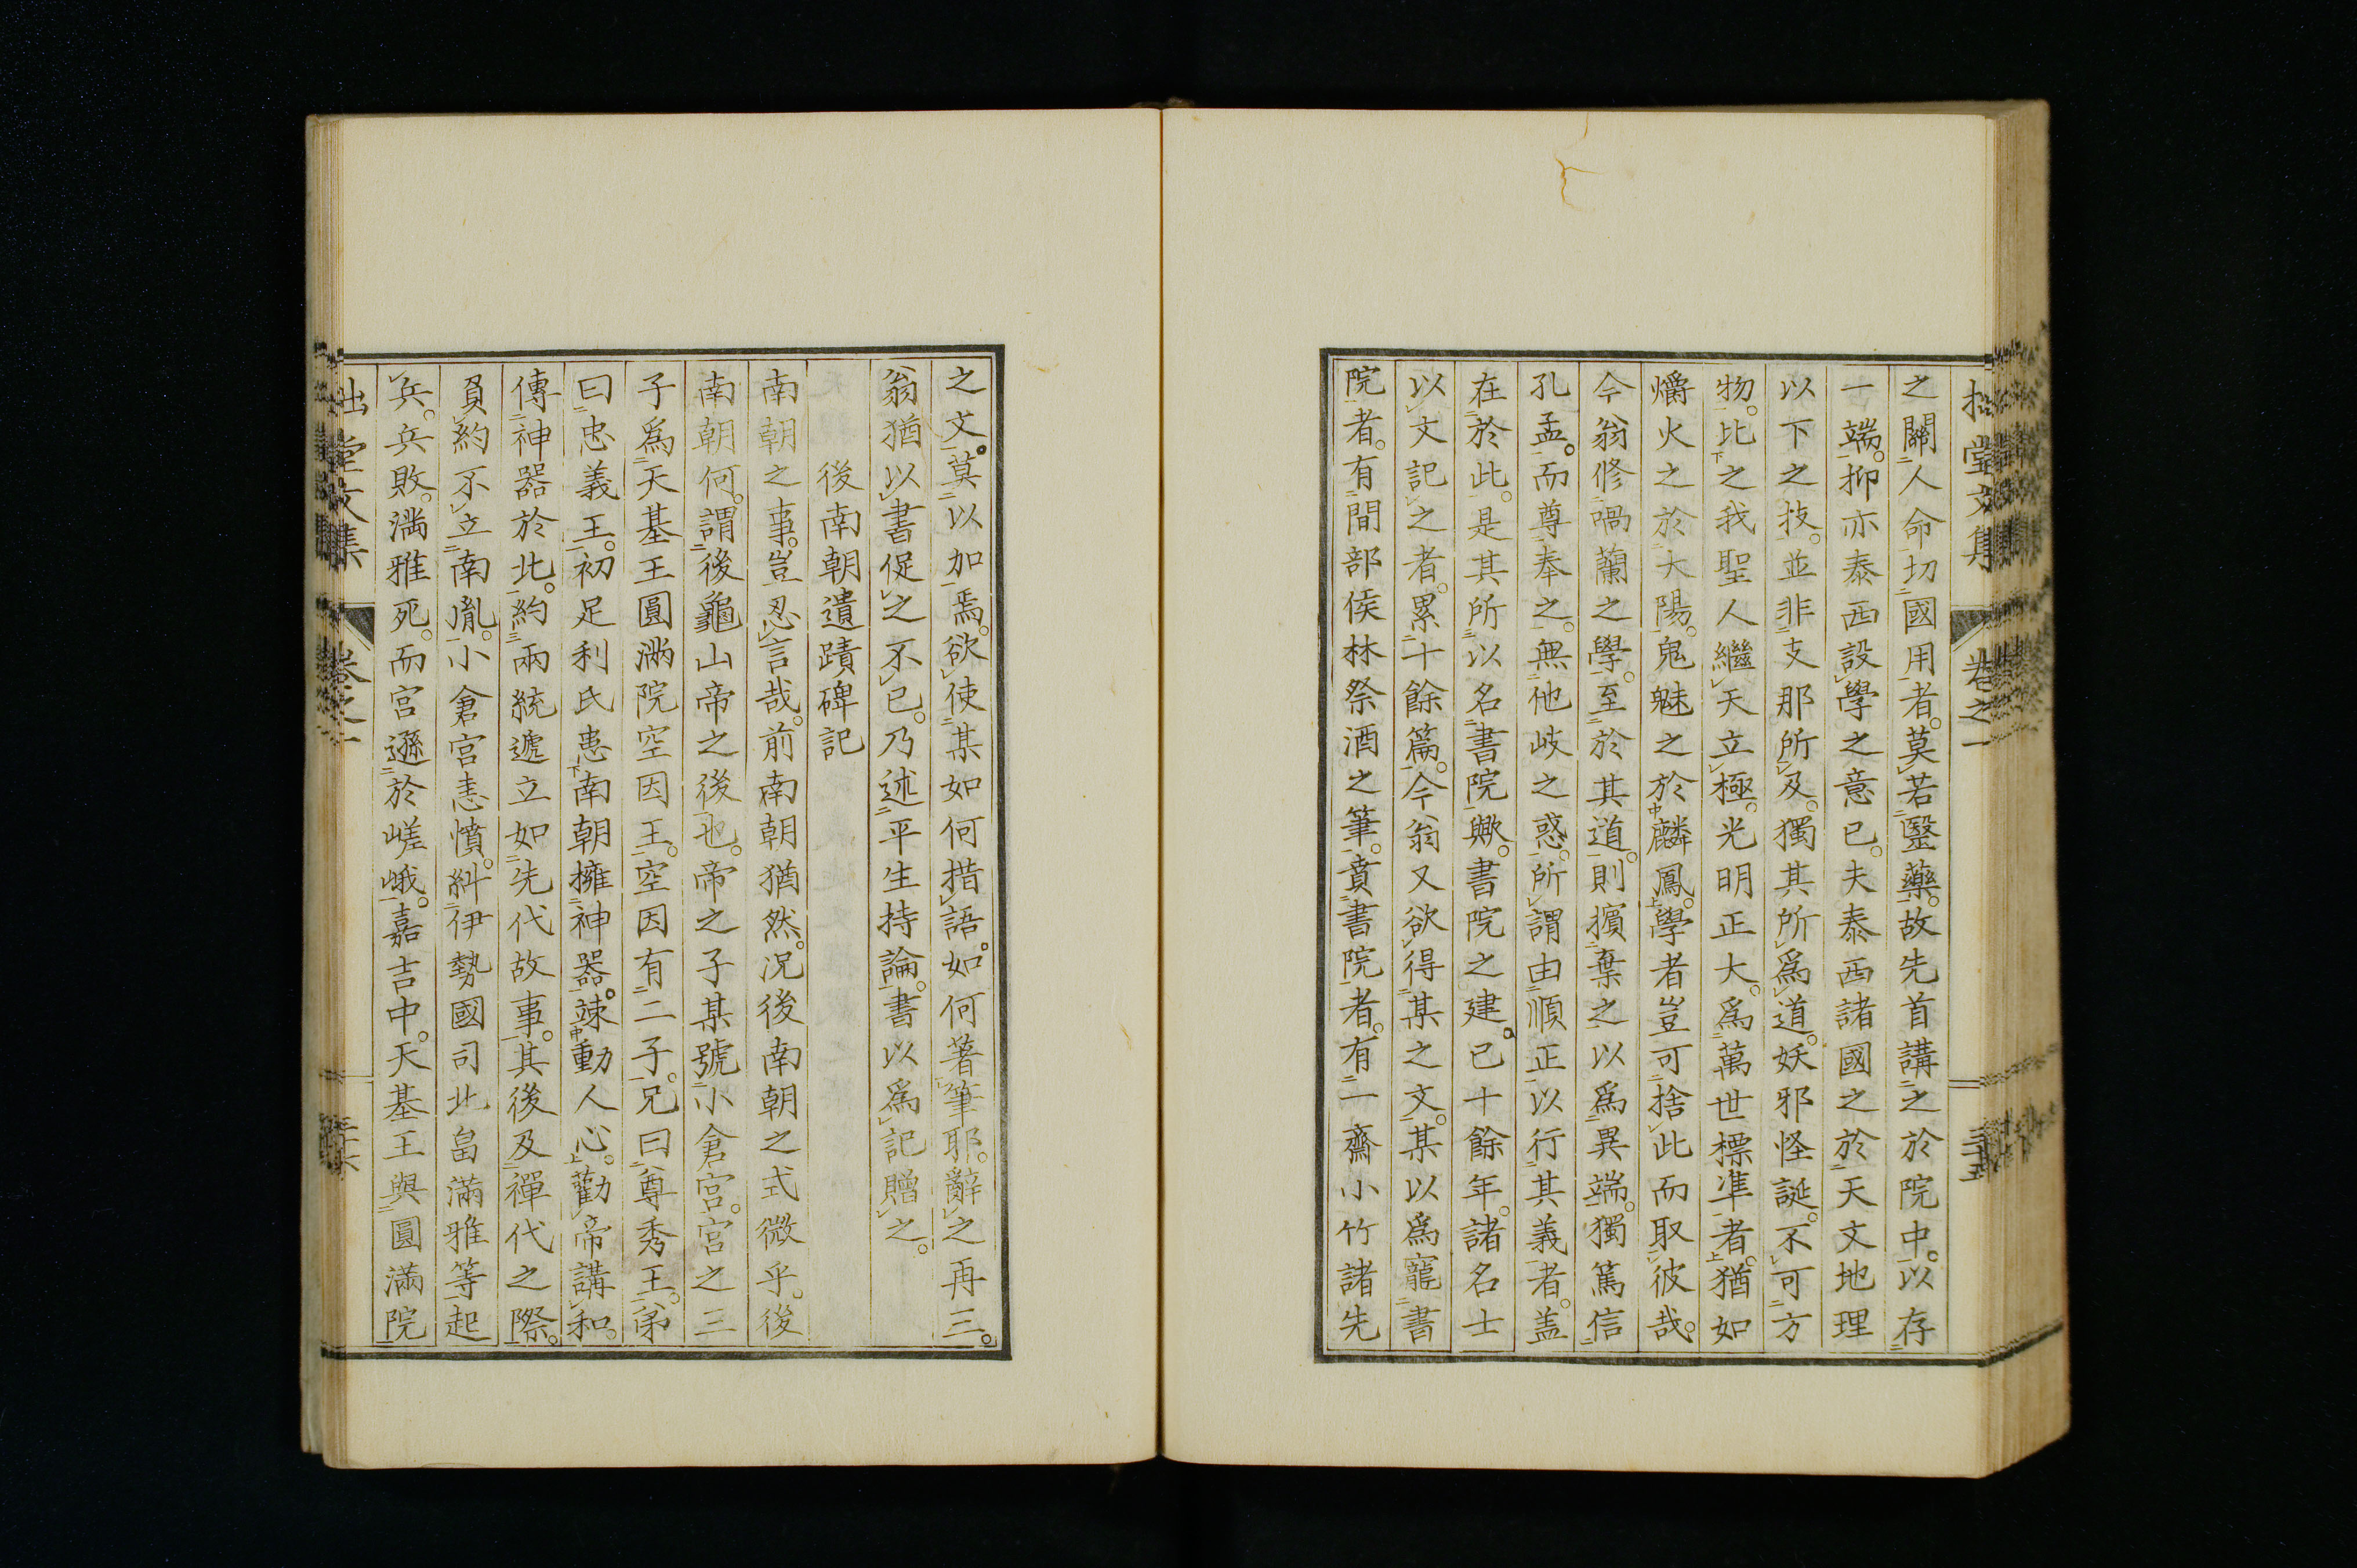 拙堂文集 卷之一 三十五
之關人命切國用者。莫若毉藥。故先首講之於院中。以存
一端。抑亦泰西設學之意已。夫泰西諸國之於天文地理
以下之技。並非支那所及。獨其所爲道。妖邪怪誕。不可方
物。比之我聖人繼天立極。光明正大。爲萬世標準者。猶如
爝火之於大陽。鬼魅之於麟鳳。學者豈可捨此而取彼哉。
今翁修喎蘭之學。至於其道。則擯棄之以爲異端。獨篤信
孔孟。而尊奉之。無他岐之惑。所謂由順正以行其義者。盖
在於此。是其所以名書院歟。書院之建。已十餘年。諸名士
以文記之者。累十餘篇。今翁又欲得某之文。某以爲寵書
院者。有間部侯林祭酒之筆。賁書院者。有一齋小竹諸先
之文。莫以加焉。欲使某如何措語。如何著筆耶。辭之再三。
翁猶以書促之不已。乃述平生持論。書以爲記贈之。
後南朝遺蹟碑記
南朝之事。豈忍言哉。前南朝猶然。况後南朝之式微乎。後
南朝何。謂後龜山帝之後也。帝之子某號小倉宮。宮之三
子爲天基王圓滿院空因王。空因有二子。兄曰尊秀王。弟
曰忠義王。初足利氏患南朝擁神器。竦動人心。勸帝講和。
傳神器於北。約兩統遞立如先代故事。其後及禪代之際。
負約不立南胤。小倉宮恚憤。糾伊勢國司北畠滿雅等起
兵。兵敗。滿雅死。而宮遜於嵯峨。嘉吉中。天基王與圓滿院
拙堂文集 卷之一 三十六